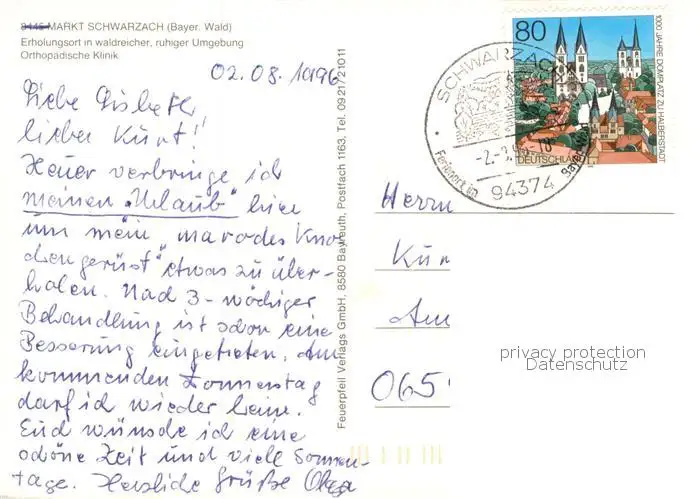 8445 MARKT SCHWARZACH (Bayer. Wald)
Erholungsort in waldreicher, ruhiger Umgebung
Orthopädische Klinik
02.08.1996
Liebe Lisbeth,
lieber Kurt!
Heuer verbringe ich
meinen „Urlaub" hier
um mein „marodes Kno-
chengerüst" etwas zu über-
holen. Nach 3-wöchiger
Behandlung ist schon eine
Besserung eingetreten. Am
kommenden Donnerstag
darf ich wieder heim.
Euch wünsche ich eine
schöne Zeit und viele Sonnen-
tage. Herzliche Grüße Olga
Feuerpfeil Verlags GmbH, 8580 Bayreuth, Postfach 1163, Tel. 0921/21011
80
1000 JAHRE DOMPLATZ ZU HALBERSTADT
DEUTSCHLAND
SCHWARZACH
Ferienort im
94374
Herrn
Kur
Am
065
privacy protection
Datenschutz